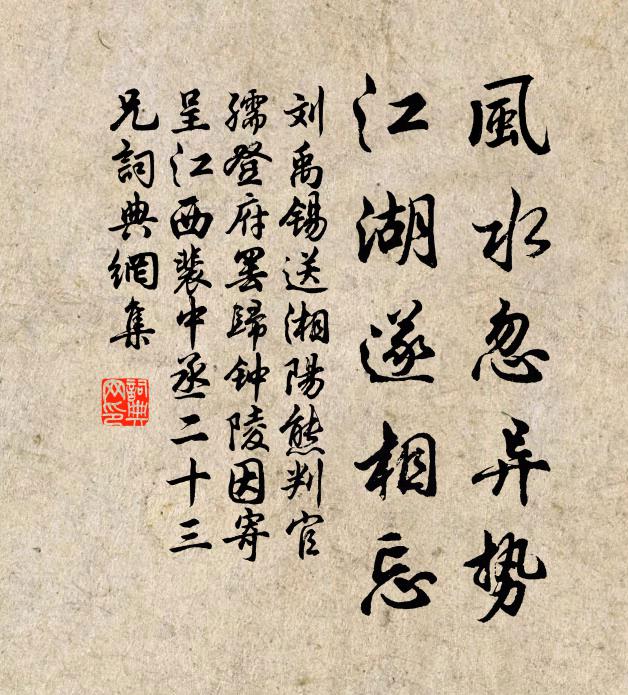 風水忽异势
江湖遂相忘
刘禹锡送湘陽熊判官
孺登府罢歸钟陵因寄
呈江西裴中丞二十三
兄詞典網集
詞典
网印